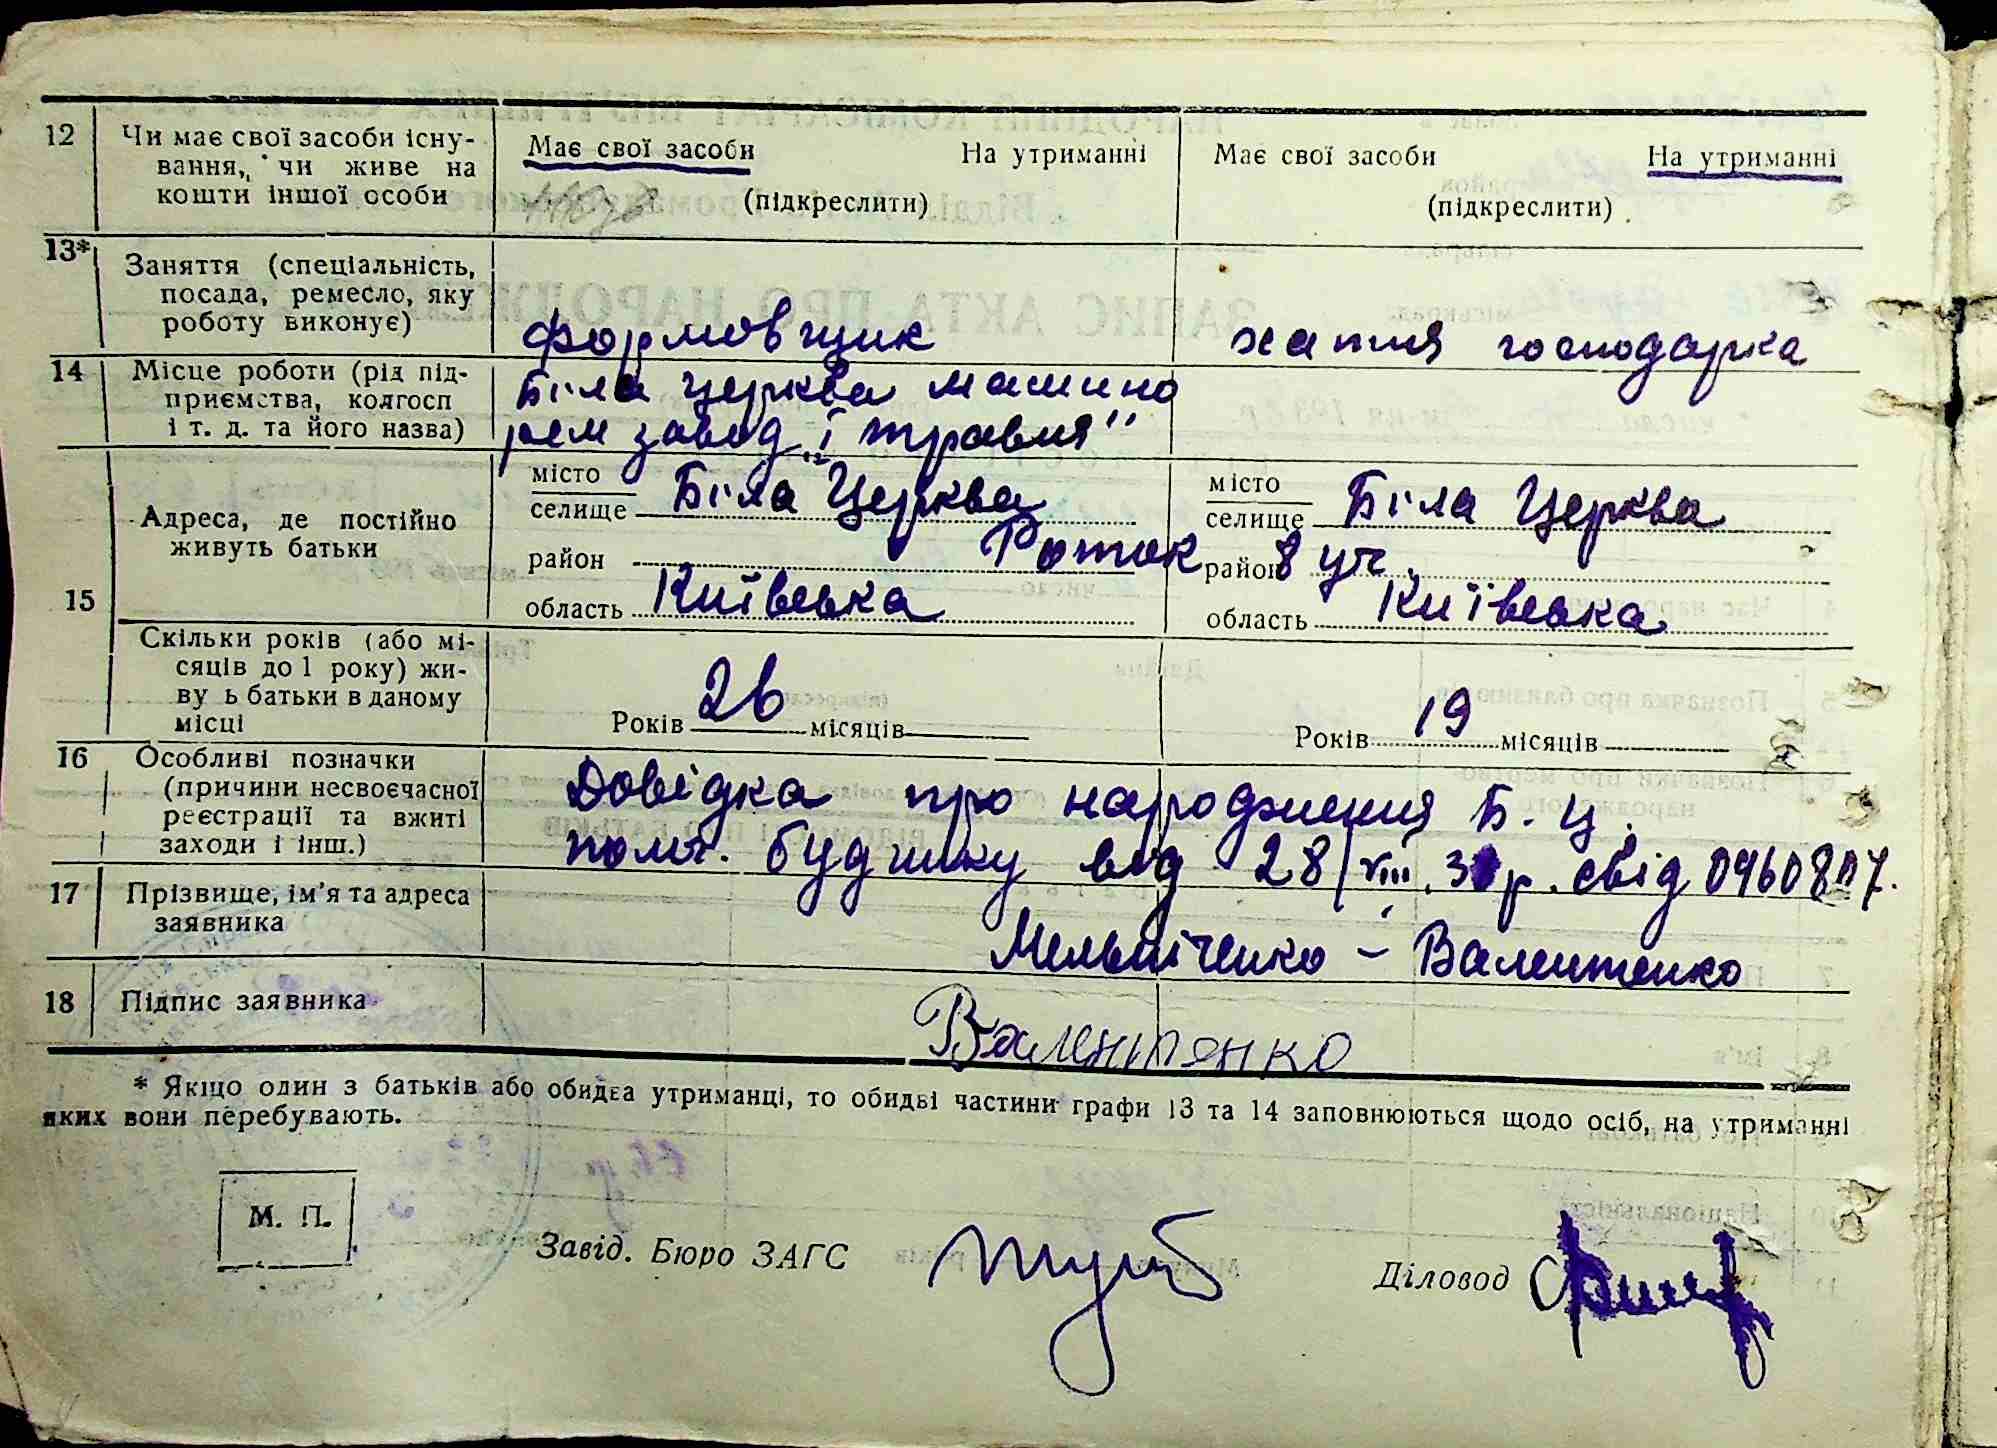 12 Чи має свої засоби існу-
вання, чи живе на
кошти іншої особи
Має свої засоби На утриманні
(підкреслити)
Має свої засоби На утриманні
(підкреслити)
13* Заняття (спеціальність,
посада, ремесло, яку
роботу виконує)
формовщик
хатня господарка
14 Місце роботи (рід під-
приємства, колгосп
і т. д. та його назва)
Біла Церква машино
рем завод „1 травня"
15 Адреса, де постійно
живуть батьки
місто
селище Біла Церква
район Роток 8 уч.
область Київська
місто
селище Біла Церква
район
область Київська
Скільки років (або мі-
сяців до 1 року) жи-
ву ь батьки в даному
місці
Років 26 місяців
Років 19 місяців
16 Особливі позначки
(причини несвоєчасної
реєстрації та вжиті
заходи і інш.)
Довідка про народження Б. Ц.
полог. будинку від 28/VIII. р. свід
17 Прізвище, ім'я та адреса
заявника
Мельніченко – Валентенко
18 Підпис заявника
Валентенко
* Якщо один з батьків або обидва утриманці, то обидві частини графи 13 та 14 заповнюються щодо осіб, на утриманні
яких вони перебувають.
М. П.
Завід. Бюро ЗАГС
Діловод